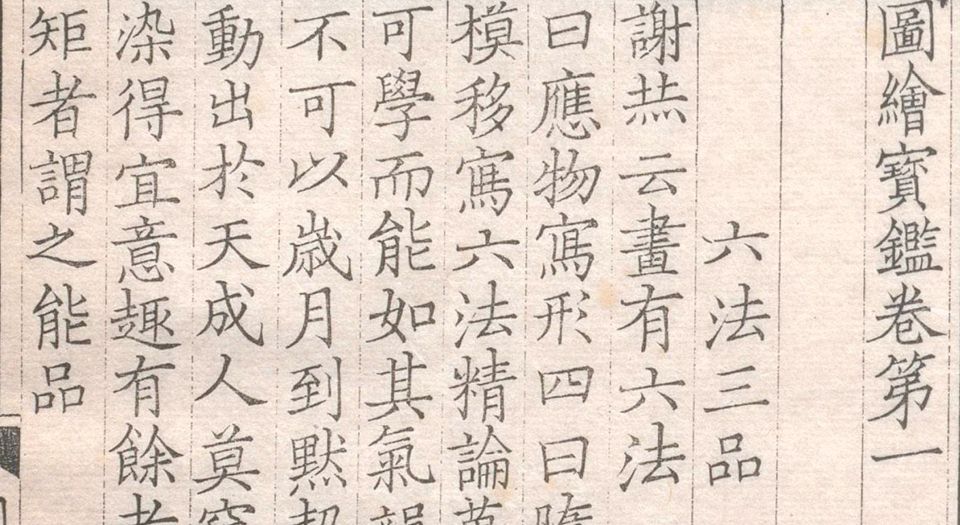 圖繪寶鑑卷第一
六法三品
謝赫云畫有六法
曰應物寫形四曰隨
模移寫六法精論萬
可學而能如其氣韻
不可以歲月到黙契
動出於天成人莫窺
染得宜意趣有餘者
矩者謂之能品